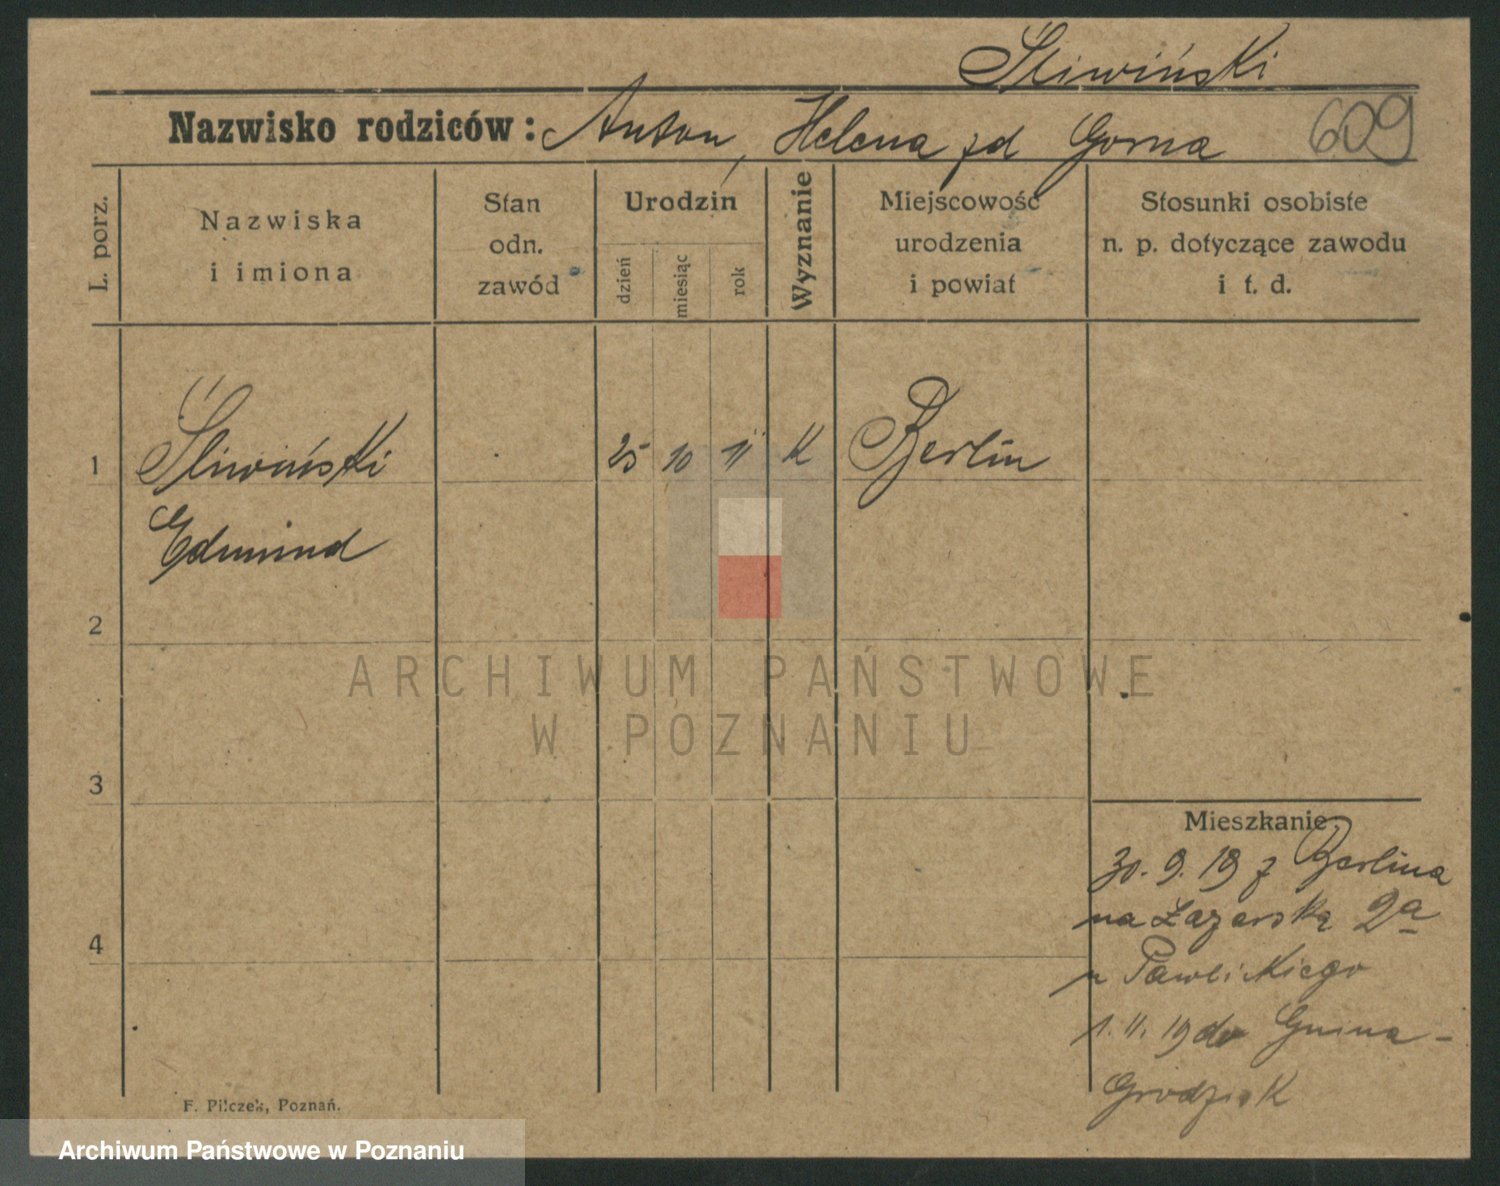 Śliwiński
Nazwisko rodziców: Anton, Helena zd Gorna
609
L. porz.
Nazwiska
i imiona
Stan
odn.
zawód
Urodzin
dzień
miesiąc
rok
Wyznanie
Miejscowość
urodzenia
i powiat
Stosunki osobiste
n. p. dotyczące zawodu
i t. d.
1 Śliwiński 25 10 11 K Berlin
Edmund
2
3
4
Mieszkanie
30. 9. 19 z Berlina
na Łazarską 2a
u Pawlickiego
1. 11. 19 do
Grodzisk
F. Pilczek, Poznań.
ARCHIWUM PAŃSTWOWE
W POZNANIU
Archiwum Państwowe w Poznaniu